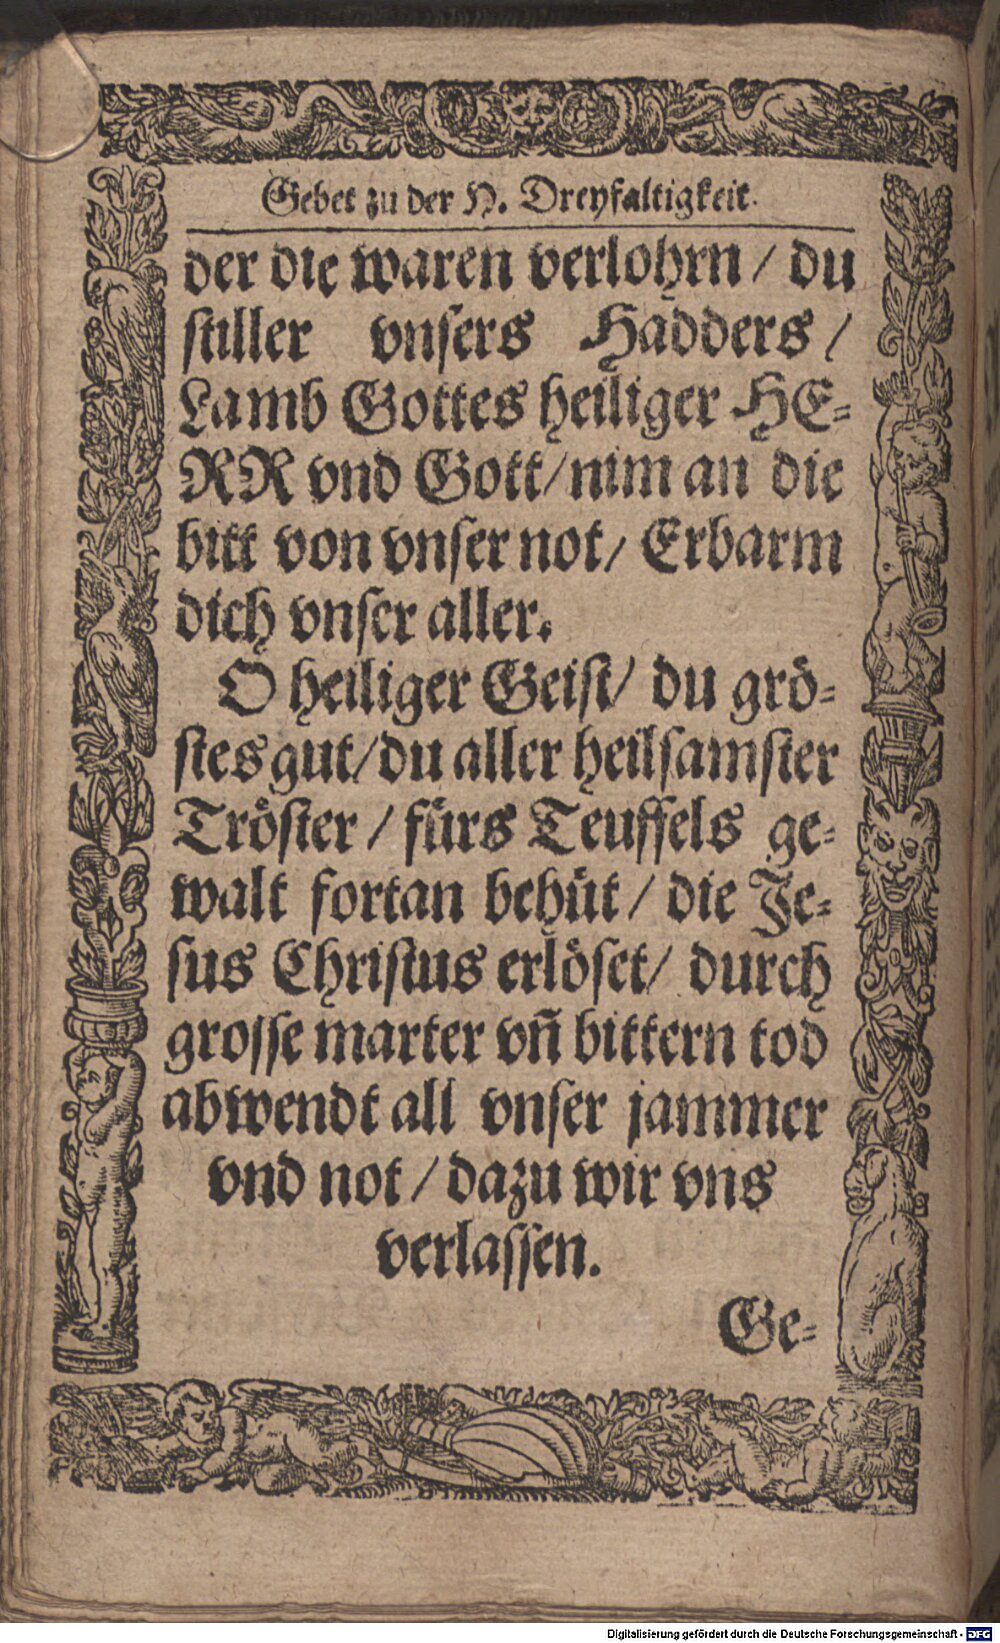 Gebet zu der H. Dreyfaltigkeit.
der die waren verlohrn / du
stiller vnsers Hadders /
Lamb Gottes heiliger HE-
RR vnd Gott / nim an die
bitt von vnser not / Erbarm
dich vnser aller.
O heiliger Geist / du grö-
stes gut / du aller heilsamster
Tröster / fürs Teuffels ge-
walt fortan behüt / die Je-
sus Christus erlöset / durch
grosse marter vñ bittern tod
abwendt all vnser jammer
vnd not / dazu wir vns
verlassen.
Ge-
Digitalisierung gefördert durch die Deutsche Forschungsgemeinschaft - DFG